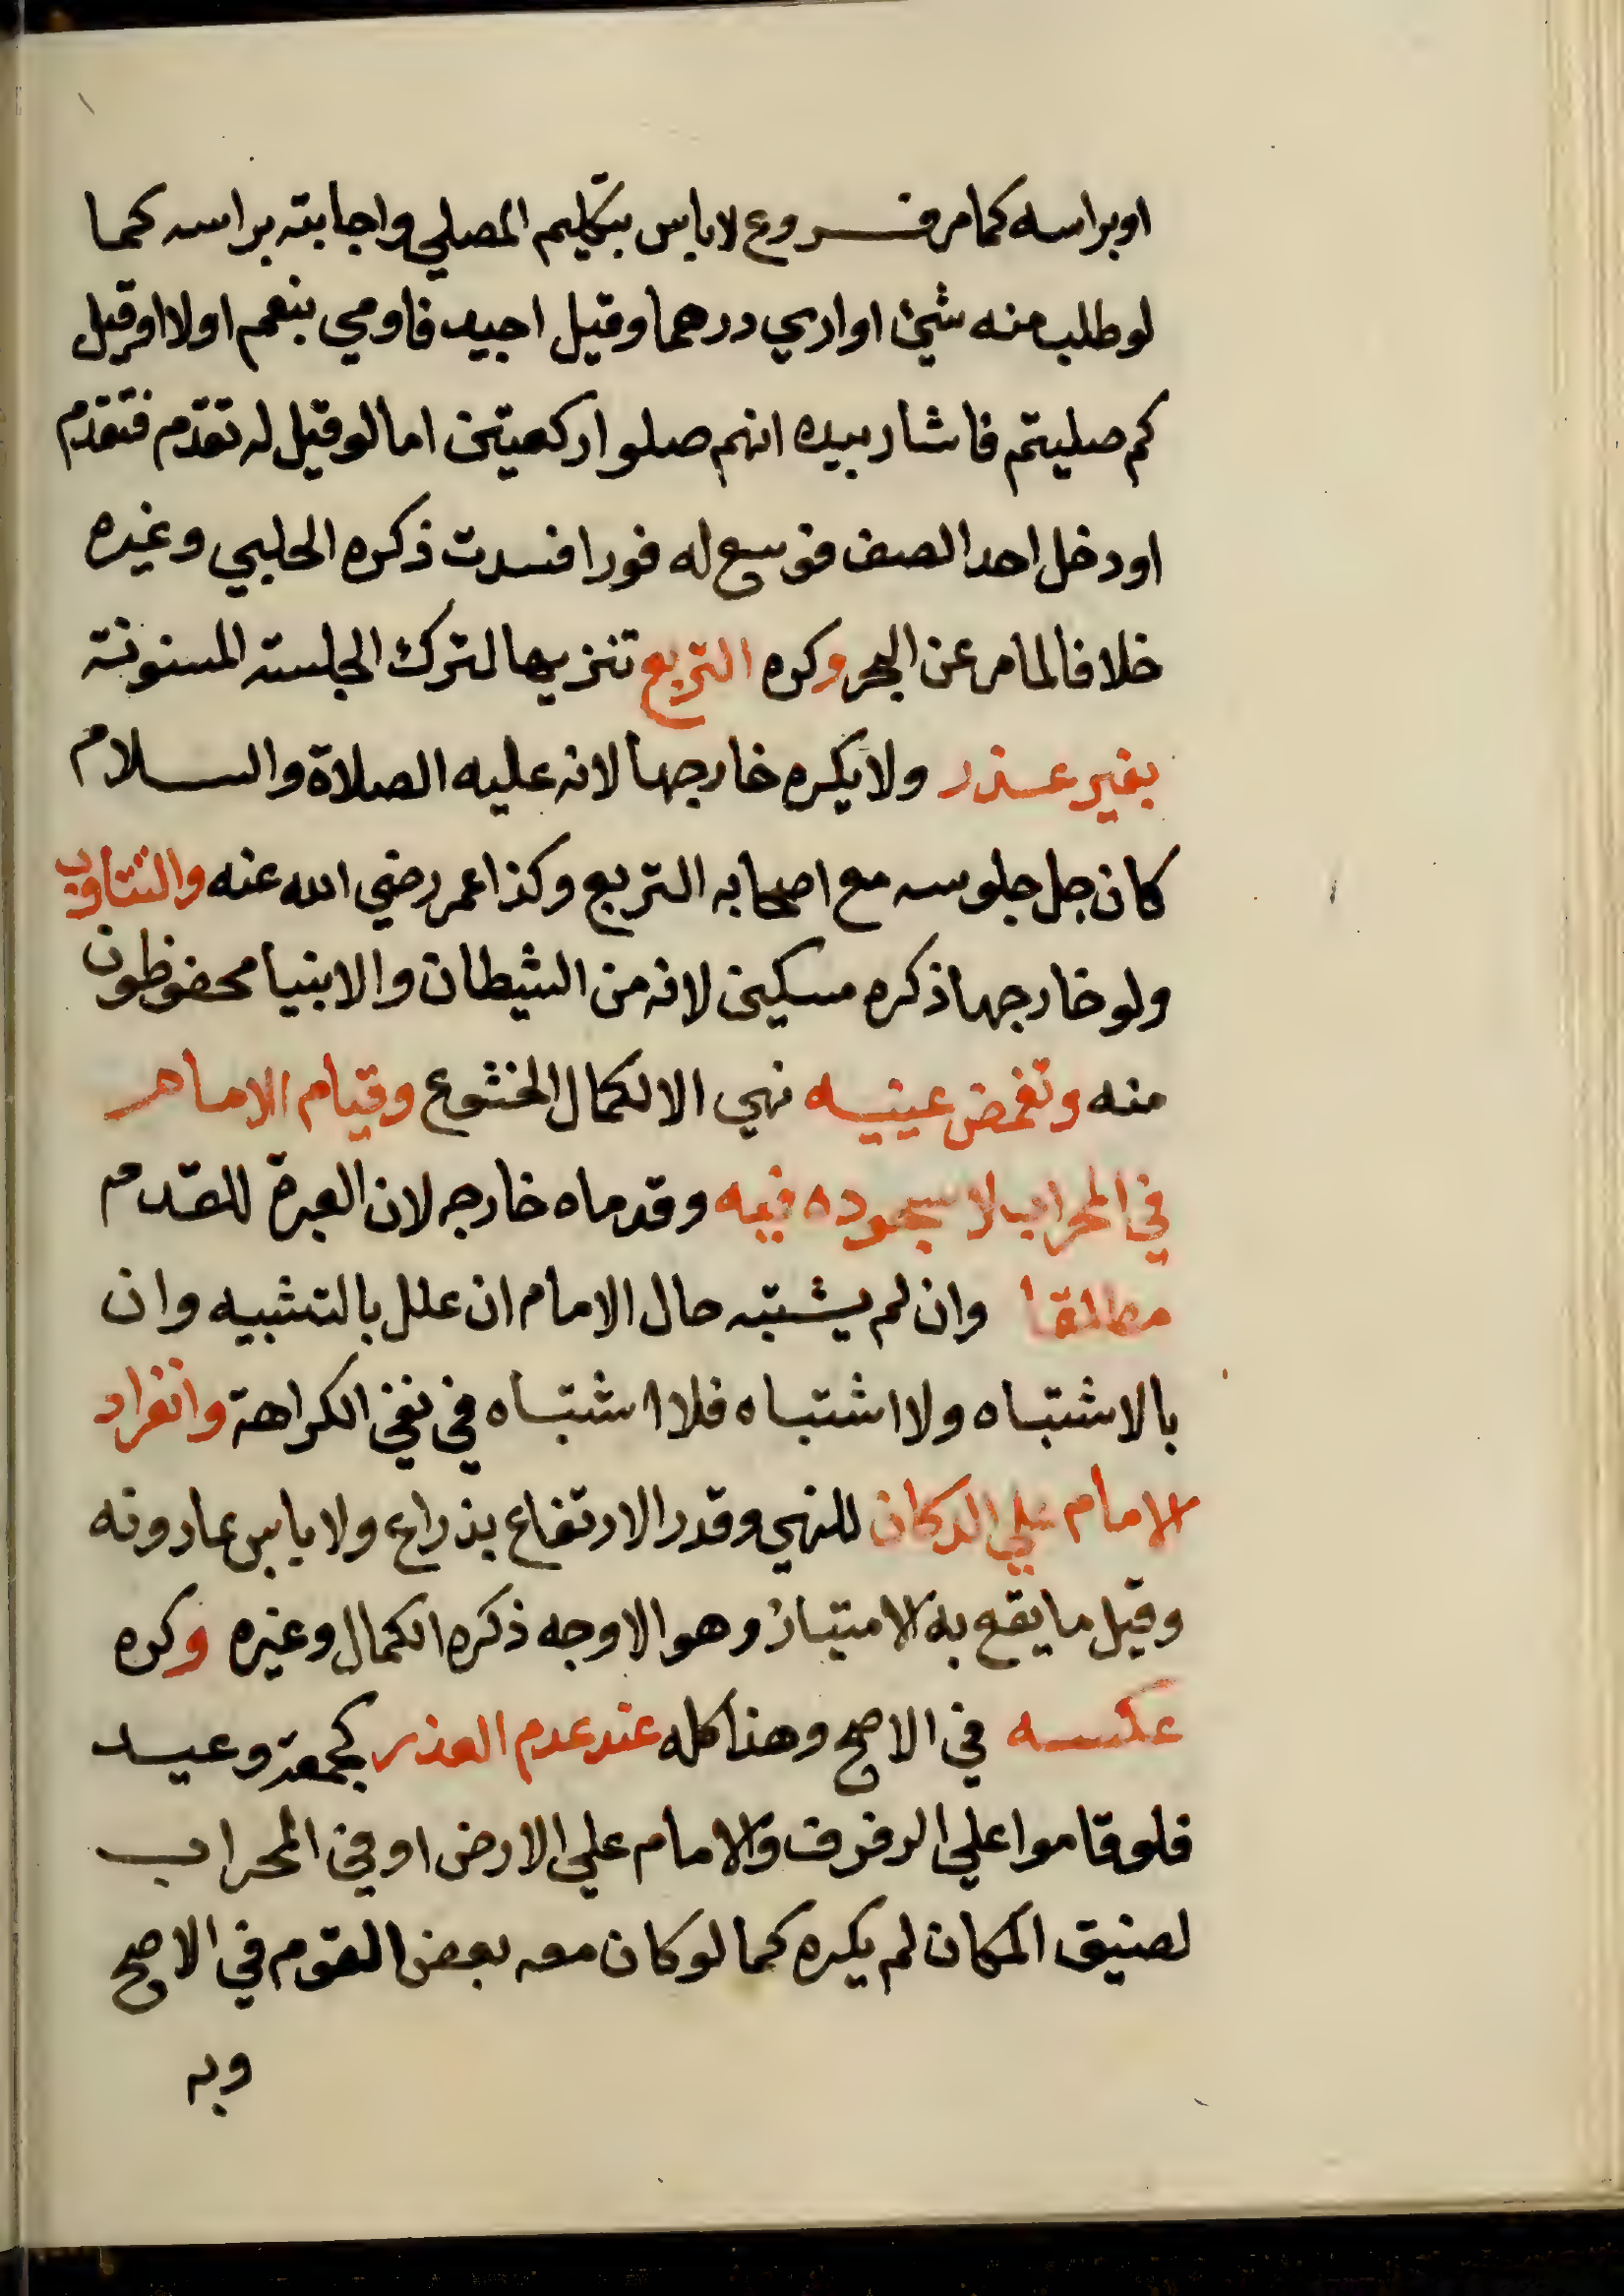 اوبراسه كمامر فـــروع لاباس بتكليم المصلي واجابته براسه كما
لوطلب منه شيئ اواري درهما وقيل اجيد فاومي بنعم اولا اوقيل
كم صليتم فاشار بيده انهم صلوا ركعتين اما لوقيل له تقدّم فتقدّم
اودخل احد الصف فوسع له فورا فسدت ذكره الحلبي وغيره
خلافا لما مر عن البحر وكره التربع تنزيها لترك الجلسة المسنونة
بغير عذر ولا يكره خارجها لانه عليه الصلاة والسلام
كان جل جلوسه مع اصحابه التربع وكذا عمر رضي الله عنه والتثاوب
ولو خارجها ذكره مسكين لانه من الشيطان والانبيا محفوظون
منه وتغمض عينيه نهي الا لكمال الخشوع وقيام الامام
في المحراب لا سجوده فيه وقدماه خارجه لان العبرة للقدم
مطلقا وان لم يشتبه حال الامام ان علل بالتشبيه وان
بالاشتباه ولا اشتباه فلا اشتباه في نفي الكراهة وانفراد
الامام علي الدكان للنهي وقدر الارتفاع بذراع ولا باس بما دونه
وقيل ما يقع به الامتياز وهو الاوجه ذكره الكمال وغيره وكره
عكسه في الاصح وهذا كله عند عدم العذر كجمعة وعيد
فلو قاموا علي الرفرف والامام علي الارض او في المحراب
لضيق المكان لم يكره كما لو كان معه بعض القوم في الاصح
وبه